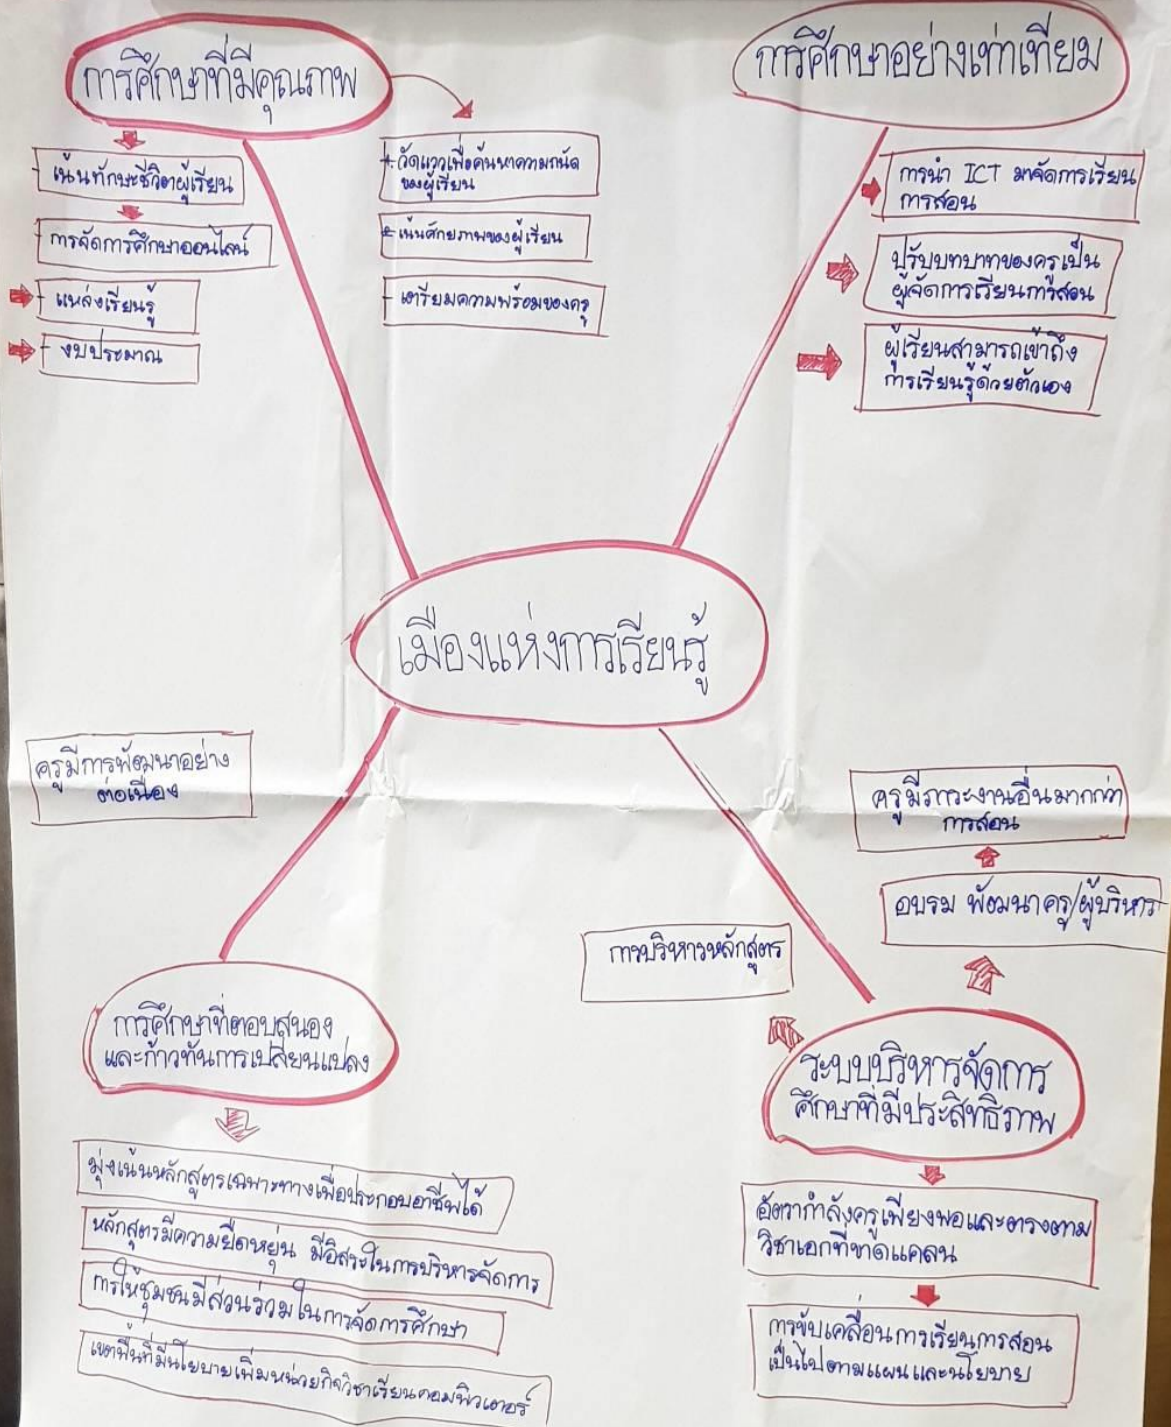 การศึกษาที่มีคุณภาพ
- เน้นทักษะชีวิตผู้เรียน
- การจัดการศึกษาออนไลน์
- แหล่งเรียนรู้
- งบประมาณ
- วัดแววเพื่อค้นหาความถนัด
ของผู้เรียน
- เน้นศักยภาพของผู้เรียน
- เตรียมความพร้อมของครู
การศึกษาอย่างเท่าเทียม
การนำ ICT มาจัดการเรียน
การสอน
ปรับบทบาทของครูเป็น
ผู้จัดการเรียนการสอน
ผู้เรียนสามารถเข้าถึง
การเรียนรู้ด้วยตัวเอง
เมืองแห่งการเรียนรู้
ครูมีการพัฒนาอย่าง
ต่อเนื่อง
การศึกษาที่ตอบสนอง
และก้าวทันการเปลี่ยนแปลง
มุ่งเน้นหลักสูตรเฉพาะทางเพื่อประกอบอาชีพได้
หลักสูตรมีความยืดหยุ่น มีอิสระในการบริหารจัดการ
การให้ชุมชนมีส่วนร่วมในการจัดการศึกษา
เขตพื้นที่มีนโยบายเพิ่มหน่วยกิจวิชาเรียนคอมพิวเตอร์
ครูมีภาระงานอื่นมากกว่า
การสอน
อบรม พัฒนาครู/ผู้บริหาร
การบริหารหลักสูตร
ระบบบริหารจัดการ
ศึกษาที่มีประสิทธิภาพ
อัตรากำลังครูเพียงพอและตรงตาม
วิชาเอกที่ขาดแคลน
การขับเคลื่อนการเรียนการสอน
เป็นไปตามแผนและนโยบาย